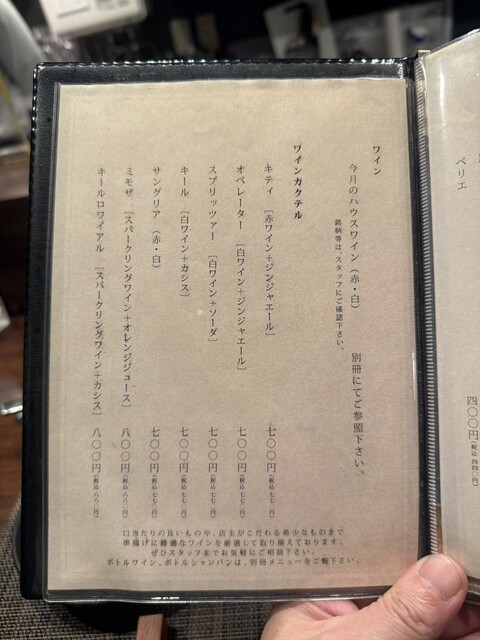 ペリエ
四〇〇円（税込 四四〇円）
ワイン
今月のハウスワイン（赤・白）
銘柄等は、スタッフにご確認下さい。
別冊にてご参照下さい。
ワインカクテル
キティ［赤ワイン＋ジンジャエール］ 七〇〇円（税込 七七〇円）
オペレーター［白ワイン＋ジンジャエール］ 七〇〇円（税込 七七〇円）
スプリッツァー［白ワイン＋ソーダ］ 七〇〇円（税込 七七〇円）
キール［白ワイン＋カシス］ 七〇〇円（税込 七七〇円）
サングリア（赤・白） 七〇〇円（税込 七七〇円）
ミモザ［スパークリングワイン＋オレンジジュース］ 八〇〇円（税込 八八〇円）
キールロワイアル［スパークリングワイン＋カシス］ 八〇〇円（税込 八八〇円）
口当たりの良いものや、店主がこだわる希少なものまで
串揚げに最適なワインを厳選して取り揃えております。
ぜひスタッフまでお気軽にご相談下さい。
ボトルワイン、ボトルシャンパンは、別冊メニューをご覧下さい。